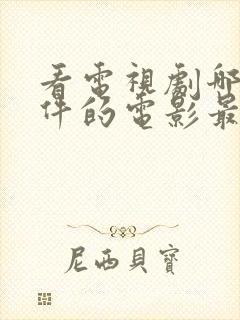 看電視劇哪
件的電影最
尼西貝寶